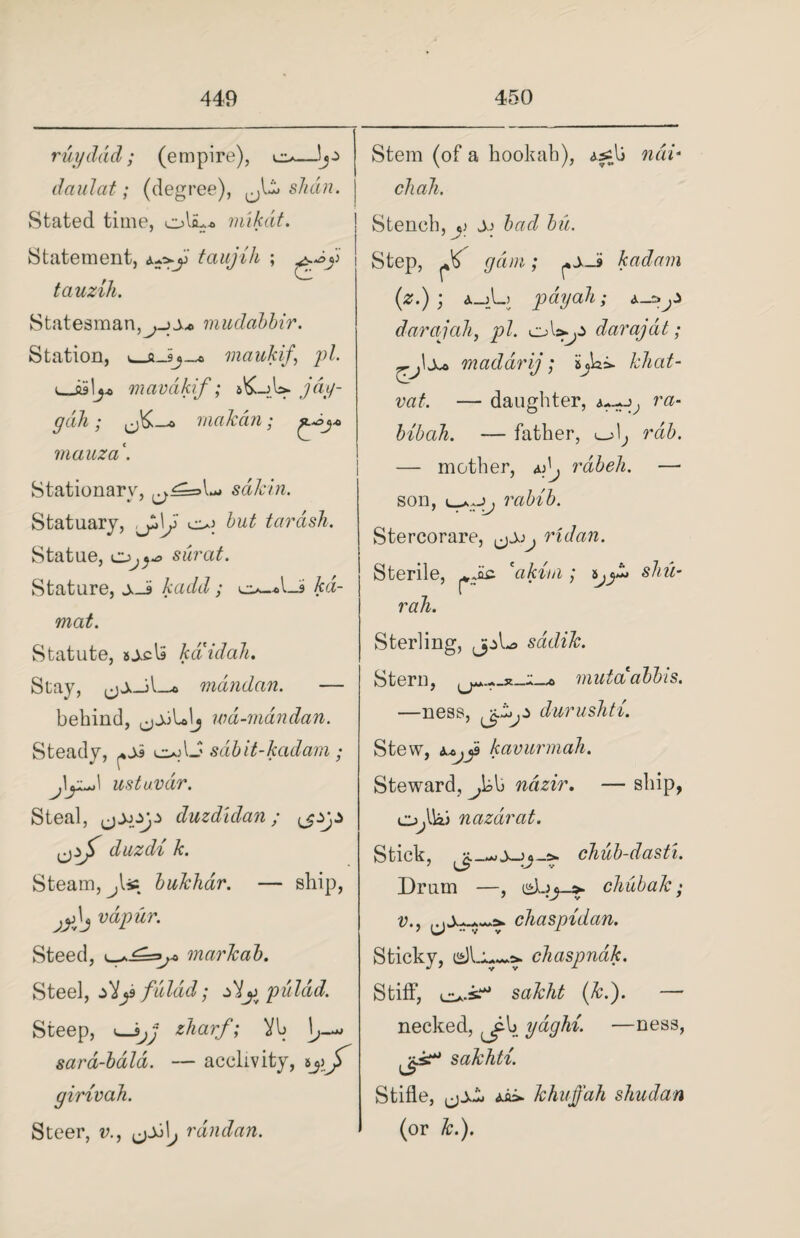 449
rúydád; (empire), دولت
daulat; (degree), شان shán.
Stated time, ميقات míkát.
Statement, توجيه taujíh ; توضيح
tauzíh.
Statesman, مدبر mudabbir.
Station, موقف maukif, pl.
مواقف mavákif; جايگاه jáy-
gáh; مكان makán; موضع
mauza‘.
Stationary, ساكن sákin.
Statuary, بت تراش but tarásh.
Statue, صورت súrat.
Stature, قد kadd; قامت ká-
mat.
Statute, قاعده ká‘idah.
Stay, ماندن mándan. —
behind, واماندن wá-mándan.
Steady, ثابت قدم sábit-kadam;
استوار ustuvár.
Steal, دزديدن duzdídan; دزدى
كردن duzdí k.
Steam, بخار bukhár. — ship,
واپور vápúr.
Steed, مركب markab.
Steel, فولاد fúlád; پولاد púlád.
Steep, ژرف zharf; سرا بالا
sará-bálá. — acclivity, گريوه
girívah.
Steer, v., راندن rándan.
450
Stem (of a hookah), نايچه nái-
chah.
Stench, بد بو bad bú.
Step, گام gám; قدم kadam
(z.); پايه páyah; درجه
darajah, pl. درجات daraját;
مدارج maddárij; خطوه khat-
vat. — daughter, ربيبه ra-
bíbah. — father, راب ráb.
— mother, رابه rábeh. —
son, ربيب rabíb.
Stercorare, ريدن rídan.
Sterile, عقيم ‘akím; شوره shú-
rah.
Sterling, صادق sádik.
Stern, متعبس muta‘abbis.
—ness, درشتى durushtí.
Stew, قورمه kavurmah.
Steward, ناظر názir. — ship,
نظارت nazárat.
Stick, چوبدستى chúb-dastí.
Drum —, چوبك chúbak;
v., چسپيدن chaspídan.
Sticky, چسپناك chaspnák.
Stiff, سخت sakht (k.). —
necked, ياغى yághí. —ness,
سختى sakhtí.
Stifle, خفه شدن khuffah shudan
(or k.).